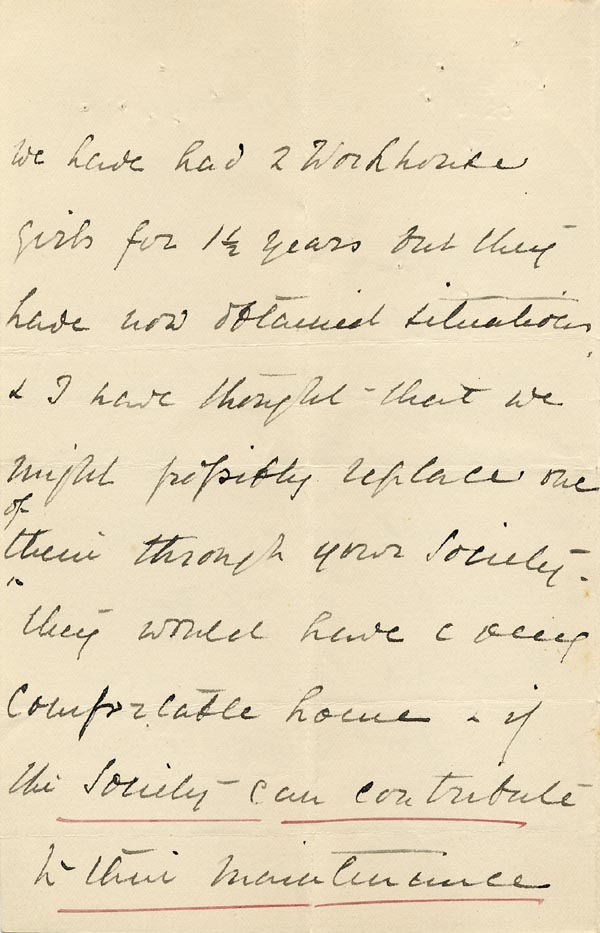 We have had 2 Workhouse
girls for 1½ years but they
have now obtained situations
& I have thought that we
might possibly replace one
of
them through your Society.
They would have a very
Comfortable home - if
the Society can contribute
to their maintenance